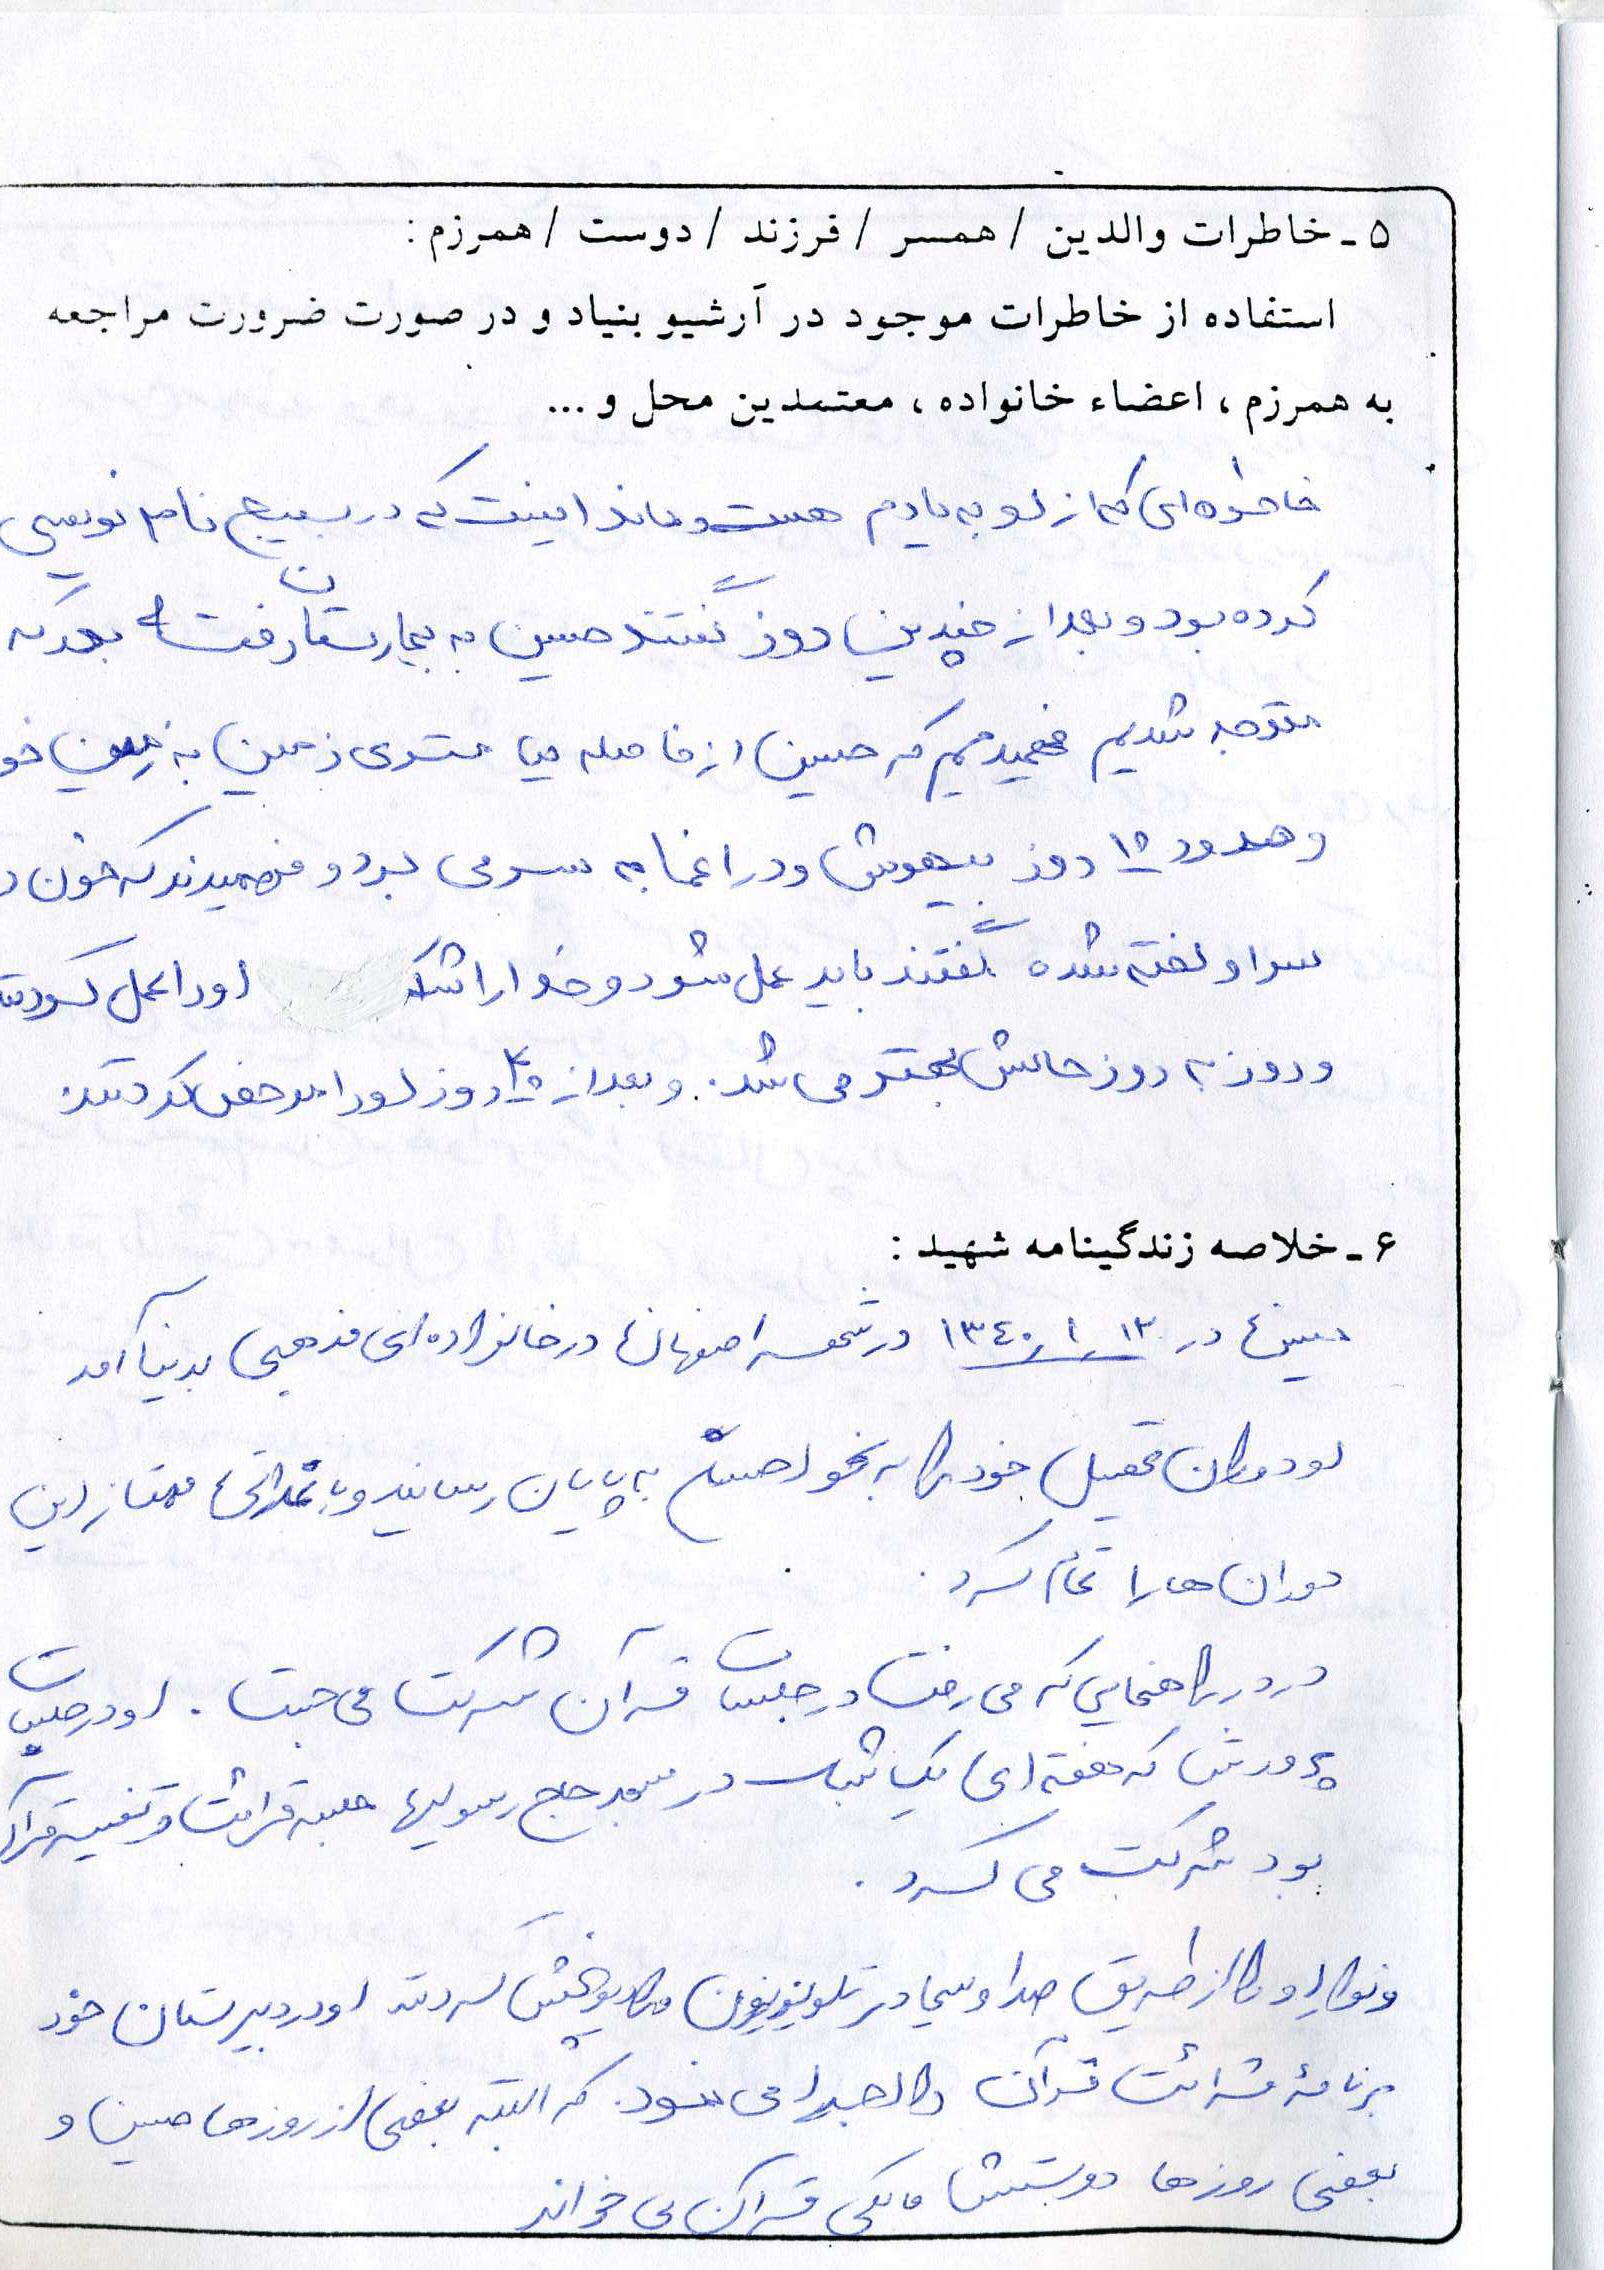 ۵ ـ خاطرات والدین / همسر / فرزند / دوست / همرزم :
استفاده از خاطرات موجود در آرشیو بنیاد و در صورت ضرورت مراجعه
به همرزم ، اعضاء خانواده ، معتمدین محل و ...
خاطره‌ای که از او به یادم هست و مانده اینست که در بسیج نام نویسی
کرده بود و بعد از چندین روز گفتند حسین به بیمارستان رفت بعد که
متوجه شدیم فهمیدیم که حسین از فاصله متری زمین به زمین
و حدود ۱۵ روز بیهوش و در اغما به سر می برد و فهمیدند که خون در
سر او لخته شده گفتند باید عمل شود و خدا را شکر او را عمل کردند
و روز به روز حالش بهتر می شد. و بعد از ۲۵ روز او را مرخص کردند.
۶ ـ خلاصه زندگینامه شهید :
حسین در ۱۳۴۰.۱.۱۳ در شهر اصفهان در خانواده‌ای مذهبی بدنیا آمد
او دوران تحصیل خود را به نحو احسن به پایان رسانید و با ممتاز این
دوران ها را تمام کرد.
در دوره راهنمایی که می رفت در جلسات قرآن شرکت می جست. او در جلسات
پرورش که هفته‌ای یک شب در مسجد حاج رسولیها جلسه قرائت و تفسیر قرآن
بود شرکت می کرد.
و نوار او را از طریق صدا و سیما در تلویزیون پخش کردند او در دبیرستان خود
برنامه قرائت قرآن را اجرا می نمود. که البته بعضی از روزها حسین و
بعضی روزها دوستش مالکی قرآن می خواند